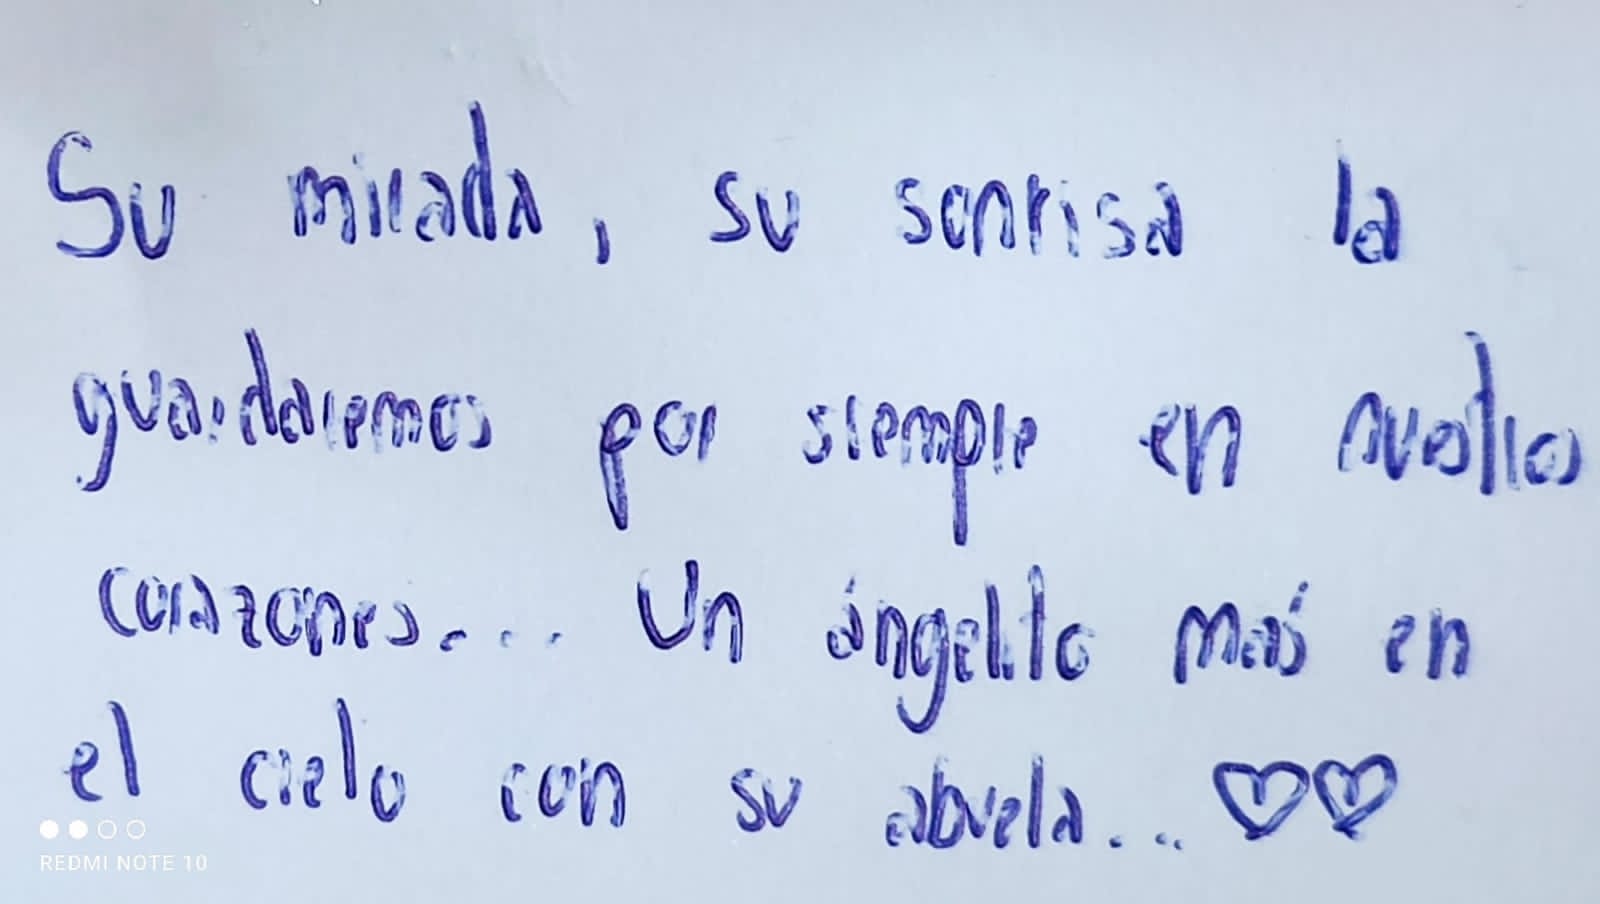 Su mirada, su sonrisa la
guardaremos por siempre en nuestros
corazones.... Un ángelito más en
el cielo con su abuela... ♡♡
REDMI NOTE 10